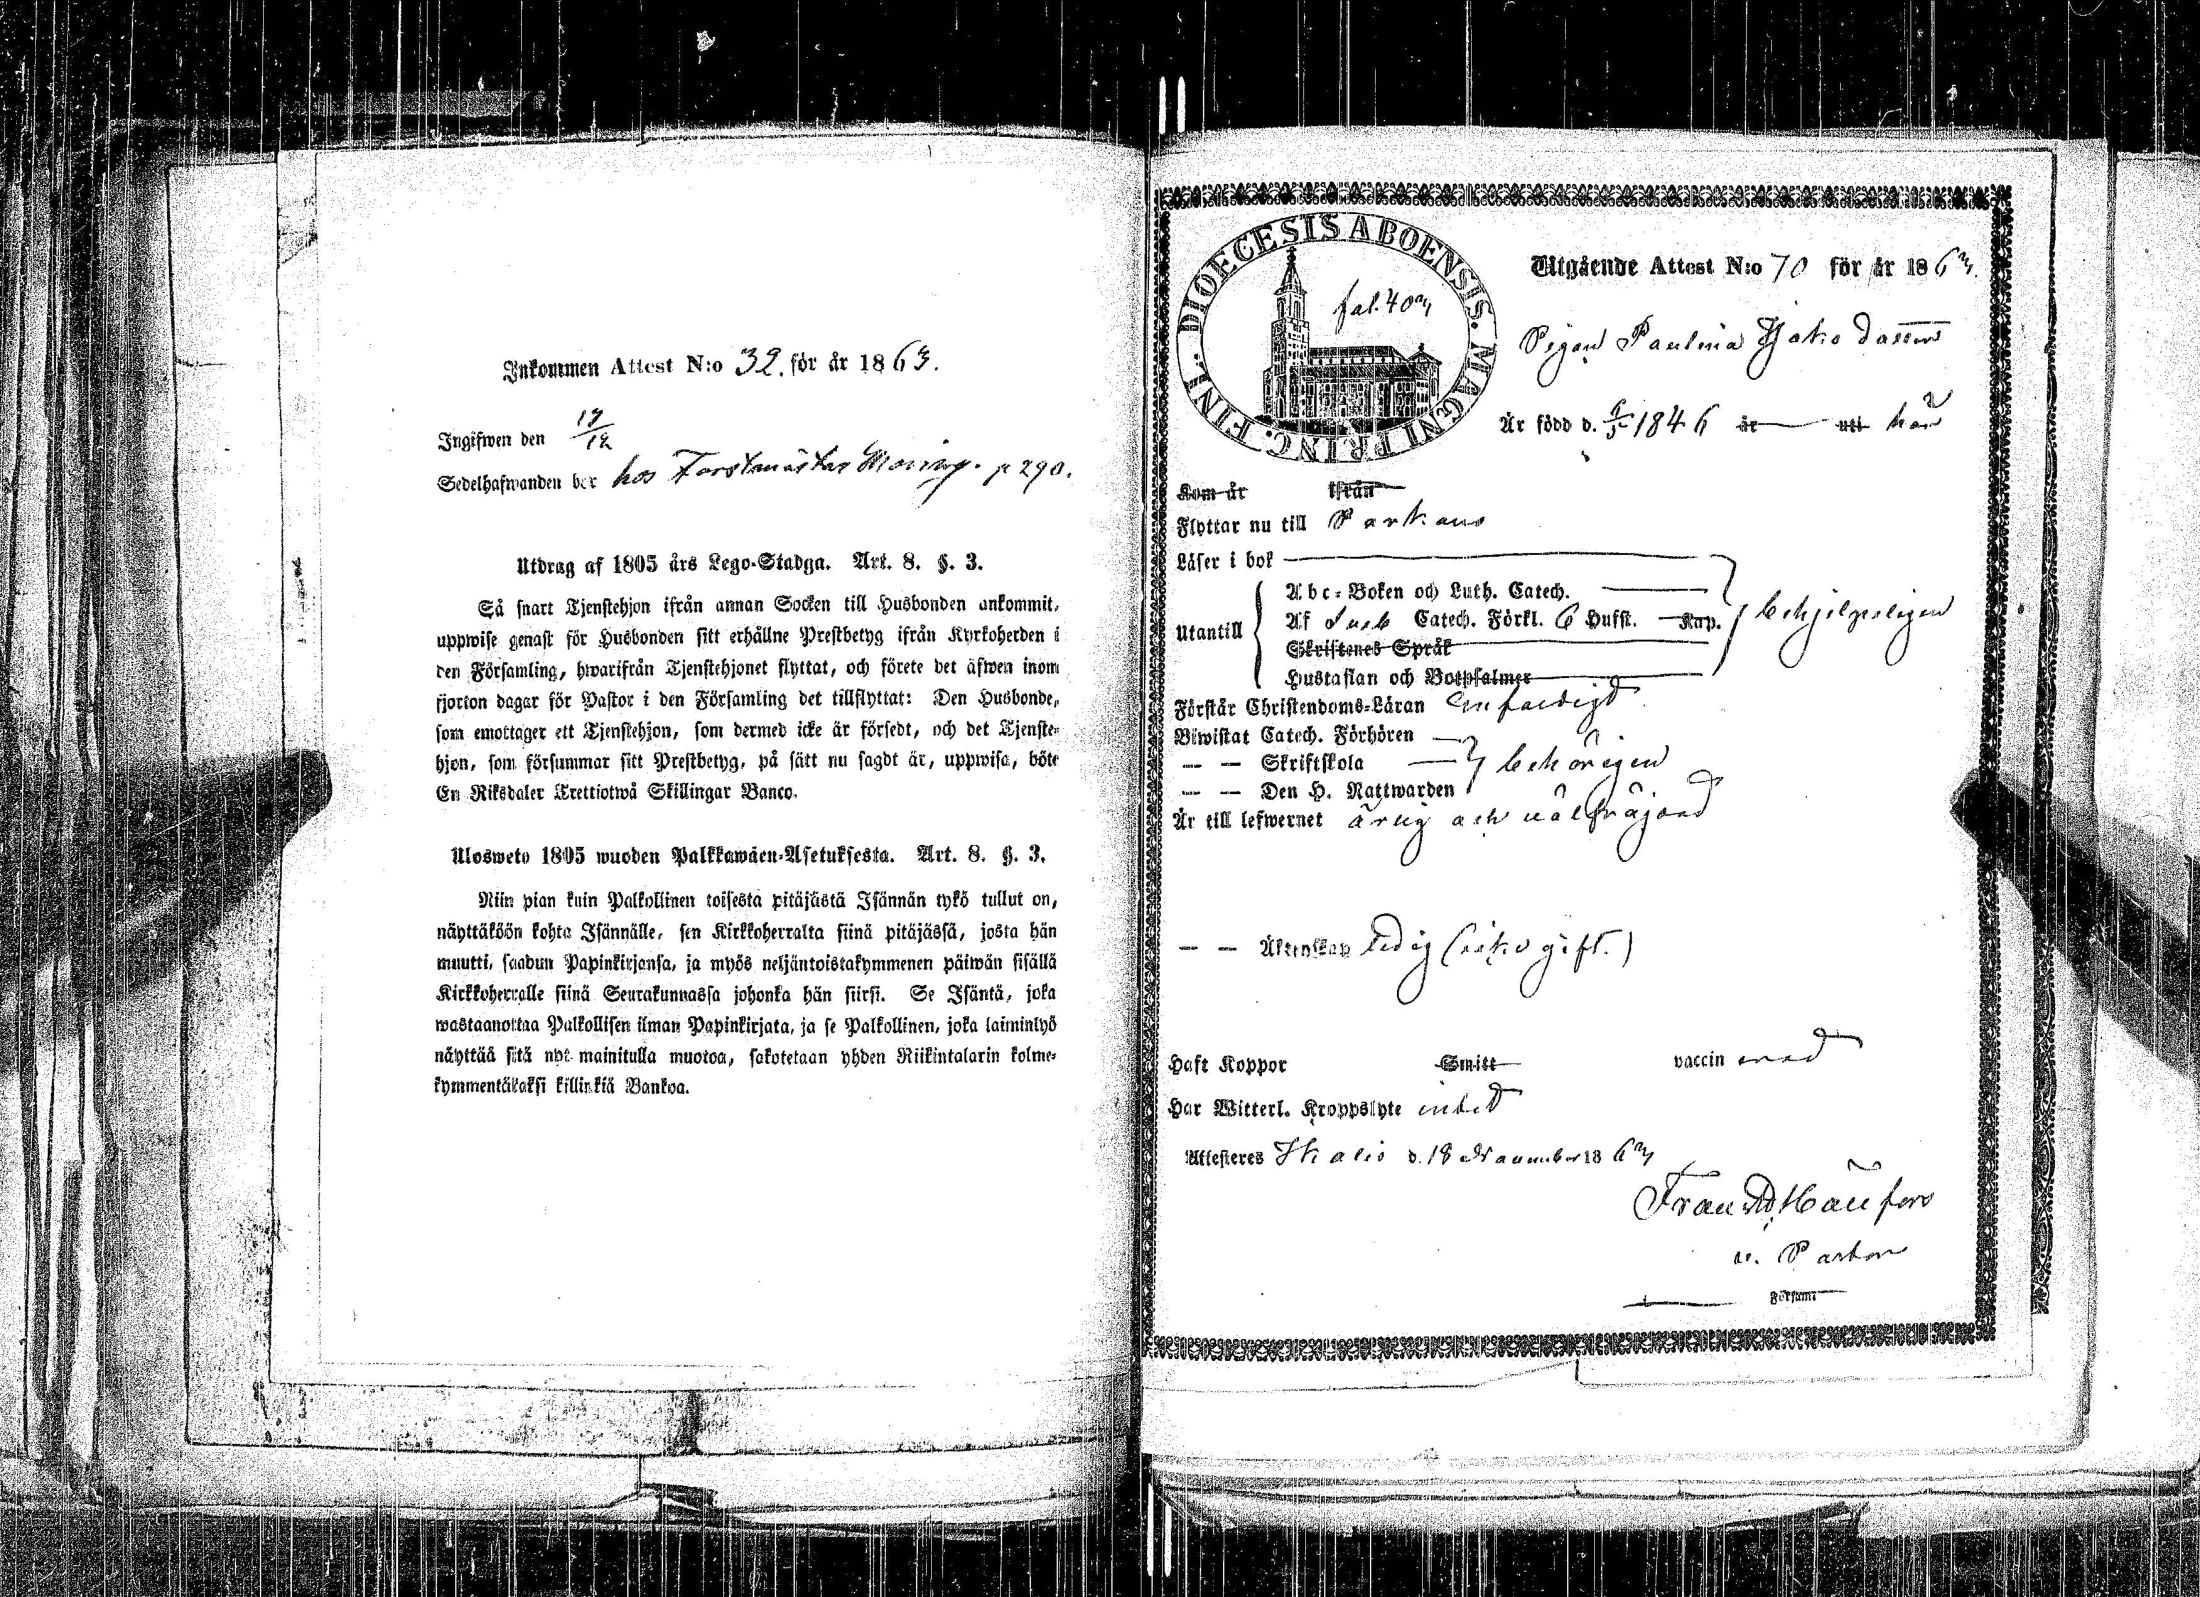 Inkommen Attest N:o 32. för år 1863.
Ingifwen den 17/12
Sedelhafwanden bor hos Forstmästar p 290.
Utdrag af 1805 års Lego-Stadga. Art. 8. §. 3.
Så snart Tjenstehjon ifrån annan Socken till Husbonden ankommit,
uppwise genast för Husbonden sitt erhållne Prestbetyg ifrån Kyrkoherden i
den Församling, hwarifrån Tjenstehjonet flyttat, och förete det äfwen inom
fjorton dagar för Pastor i den Församling det tillflyttat: Den Husbonde,
som emottager ett Tjenstehjon, som dermed icke är försedt, och det Tjenste-
hjon, som försummar sitt Prestbetyg, på sätt nu sagdt är, uppwisa, böte
En Riksdaler Trettiotwå Skillingar Banco.
Ulosweto 1805 wuoden Palkkawäen-Asetuksesta. Art. 8. §. 3.
Niin pian kuin Palkollinen toisesta pitäjästä Isännän tykö tullut on,
näyttäköön kohta Isännälle, sen Kirkkoherralta siinä pitäjässä, josta hän
muutti, saadun Papinkirjansa, ja myös neljäntoistakymmenen päiwän sisällä
Kirkkoherralle siinä Seurakunnassa johonka hän siirsi. Se Isäntä, joka
wastaanottaa Palkollisen ilman Papinkirjata, ja se Palkollinen, joka laiminlyö
näyttää sitä nyt mainitulla muotoa, sakotetaan yhden Riikintalarin kolme-
kymmentäkaksi killinkiä Bankoa.
DIOECESIS ABOENSIS. MAGNI PRINC. FINL.
fol. 403
Utgående Attest N:o 70 för år 1863.
Pigan Paulina Jakobsdotter
Är född d. 1846 år — utt här
Kom år ifrån
Flyttar nu till Parkano
Läser i bok
Utantill
Abc-Boken och Luth. Catech.
Af Sveb Catech. Förkl. 6 Hufst. — Kap.
behjelpligen
Skriftenes Språk
Hustaflan och Botpsalmer
Förstår Christendoms-Läran enfaldigt
Biwistat Catech. Förhören
— — Skriftskola
behörigen
— — Den H. Nattwarden
Är till lefwernet ärlig och välfräjdad
— — Äktenskap ledig (icke gift.)
Haft Koppor Smitt vaccin med
Har Witterl. Kroppslyte intet
Attesteres Ikalis d. 18 November 1863
Frans
v. Pastor
Församl